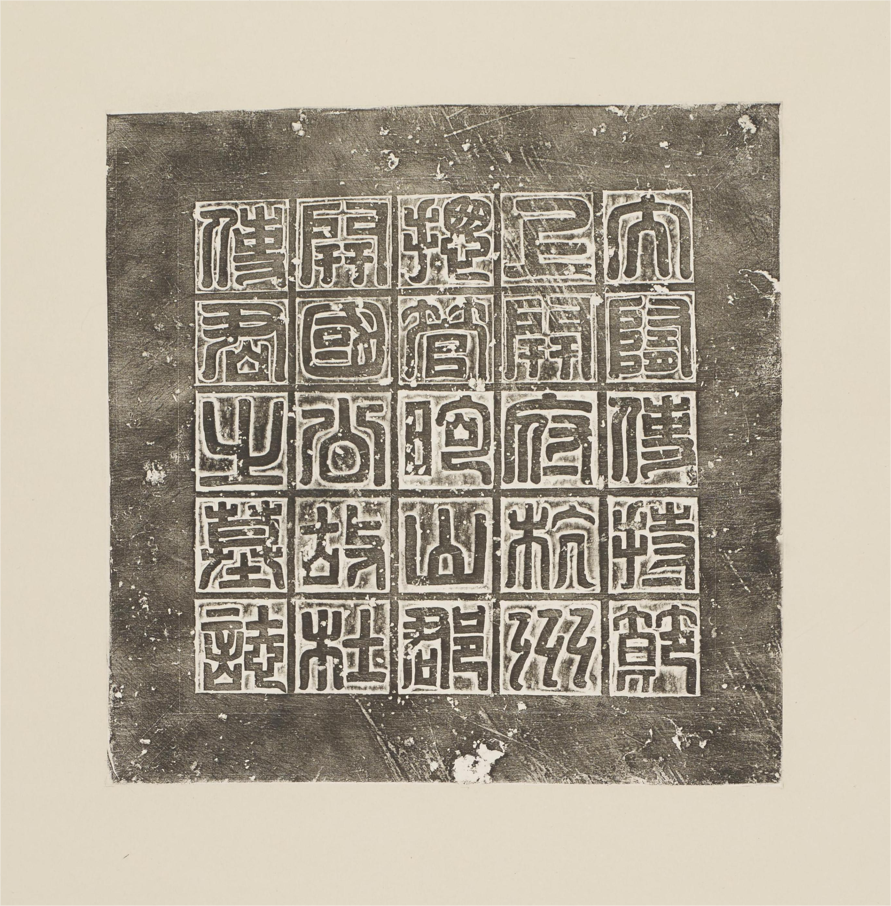 大隋使持節
上開府杭州
總管昫山郡
開國公故杜
使君之墓誌